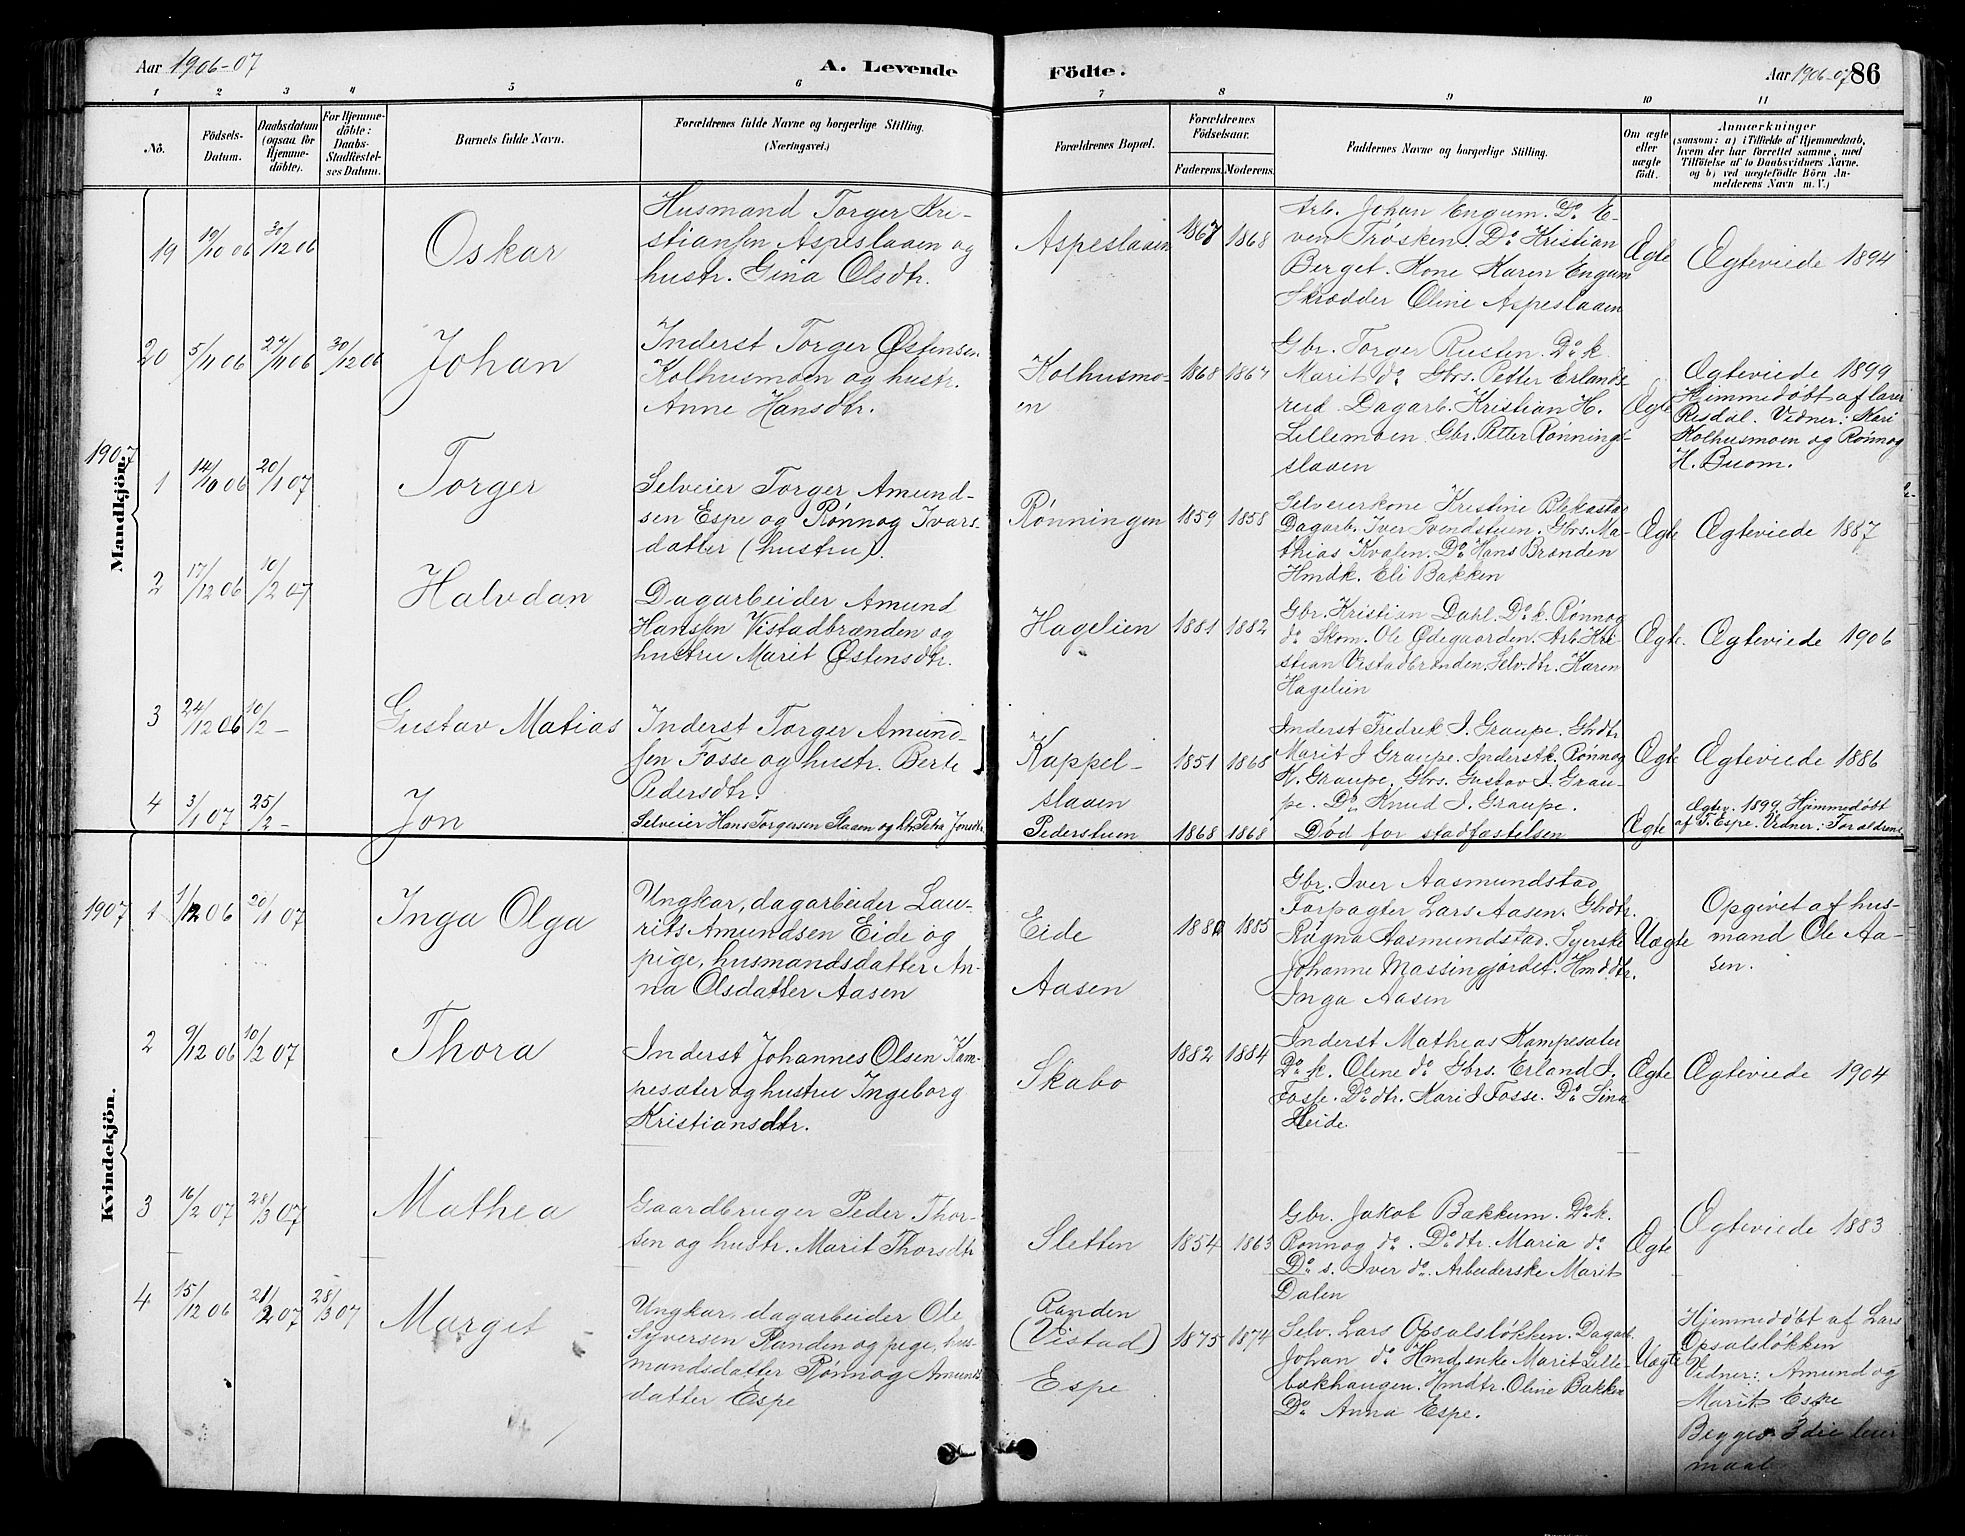 Aar 1906-07
A. Levende
Födte.
Aar 1906-07 86
1 2 3 4 5 6 7 8 9 10 11
No.
Födsels-
Datum.
Daabsdatum
(ogsaa for
Hjemme-
döbte).
For Hjemme-
döbte:
Daabs-
Stadfæstel-
ses Datum.
Barnets fulde Navn.
Forældrenes fulde Navne og borgerlige Stilling.
(Næringsvei.)
Forældrenes Bopæl.
Forældrenes
Födselsaar.
Faderens. Moderens.
Faddernes Navne og borgerlige Stilling.
Om ægte
eller
uægte
födt.
Anmærkninger
(saasom: a) i Tilfælde af Hjemmedaab,
hvem der har forrettet samme, med
Tilföielse af to Daabsvidners Navne,
og b) ved uægtefödte Börn An-
melderens Navn m. V.)
Mandkjön.
19 19/10 06 30/12 06 Oskar
Husmand Torger Kri-
stiansen Aspeslaaen og
hustr. Gina Olsdtr.
Aspeslaaen 1867 1868
Arb. Johan Engum. Do E-
ven Trøsken. Do Kristian
Berget. Kone Karen Engum
Skrædder Oline Aspeslaaen
Ægte Ægteviede 1894
20 5/11 06 27/11 06 30/12 06 Johan
Inderst Torger Østensen
Kolhusmoen og hustr.
Anne Hansdtr.
Kolhusmo-
en
1868 1867
Gbr. Torger Rusten. Do k.
Marit do Gbrs. Petter Erlands-
rud. Dagarb. Kristian H.
Lillemoen. Gbr. Petter Rønnings-
slaaen
Ægte
Ægteviede 1899
Hjemmedøbt af lærer
Resdal. Vidner: Mari
Kolhusmoen og Rønnog
H. Buom.
1907
1 14/10 06 20/1 07 Torger
Selveier Torger Amund-
sen Espe og Rønnog Ivars-
datter (hustru).
Rønningen 1859 1858
Selveierkone Kristine Blekastad
Dagarb. Iver Tvendstuen. Gbrs. Ma-
thias Kvalen. Do Hans Brænden
Hmdk. Eli Bakken
Ægte Ægteviede 1887
2 17/12 06 10/2 07 Halvdan
Dagarbeider Amund
Hansen Vistadbrænden og
hustru Marit Østensdtr.
Hagelien 1881 1882
Gbr. Kristian Dahl. Do k. Rønnog
do Skom. Ole Ødegaarden. Arb. Kri-
stian Vistadbrænden. Selv.dtr. Karen
Hagelien
Ægte. Ægteviede 1906
3 24/12 06 10/2 – Gustav Matias
Inderst Torger Amund-
sen Fosse og hustr. Berte
Pedersdtr.
Kappel-
slaaen
1851 1868
Inderst Fredrek I. Graupe. Gbdtr
Marit I Graupe. Inderstk. Rønnog
M. Graupe. Gbrs. Gustav I. Grau-
pe. Do Knud I. Graupe.
Ægte Ægteviede 1886
4 3/1 07 25/2 – Jon
Selveier Hans Torgersen Slaaen og htr. Petra Jonsdtr
Pederstuen 1868 1868 Død før stadfæstelsen Ægte
Ægtev. 1899. Hjemmedøbt
af T. Espe. Vidner: Forældrene
Kvindekjön.
1907 1 1/12 06 20/1 07 Inga Olga
Ungkar, dagarbeider Lau-
rits Amundsen Eide og
pige, husmandsdatter An-
na Olsdatter Aasen
Eide
Aasen
1880 1885
Gbr. Iver Aasmundstad
Forpagter Lars Aasen. Gbdtr.
Ragna Aasmundstad. Syerske
Johanne Massingjordet. Hmddtr.
Inga Aasen
Uægte
Opgivet af hus-
mand Ole Aa-
sen.
2 9/12 06 10/2 07 Thora
Inderst Johannes Olsen Kam-
pesæter og hustru Ingeborg
Kristiansdtr.
Skabo 1882 1884
Inderst Mathias Kampesæter
Do k. Oline do Gbrs. Erland I.
Fosse. Do dtr. Kari I Fosse. Do Sina
Heide
Ægte Ægteviede 1904
3 16/2 07 28/3 07 Mathea
Gaardbruger Peder Thor-
sen og hustr. Marit Thorsdtr
Sletten 1854 1863
Gbr. Jakob Bakkum. Do k.
Rønnog do. Do dtr. Maria do
Do s. Iver do. Arbeiderske Marit
Dalen
Ægte Ægteviede 1883
4 15/12 06 21/12 07 28/3 07 Marget
Ungkar, dagarbeider Ole
Syversen Randen og pige, hus-
mandsdatter Rønnog Amunds-
datter Espe
Randen
(Vistad)
Espe
1875 1874
Selv. Lars Opsalsløkken. Dagarb.
Johan do Hmdenke Marit Lille-
bækhaugen. Hmdtr. Oline Bakken
Do Anna Espe.
Uægte
Hjemmedøbt af Lars
Opsalsløkken
Vidner: Amund og
Marit Espe
Begges 3die leier-
maal